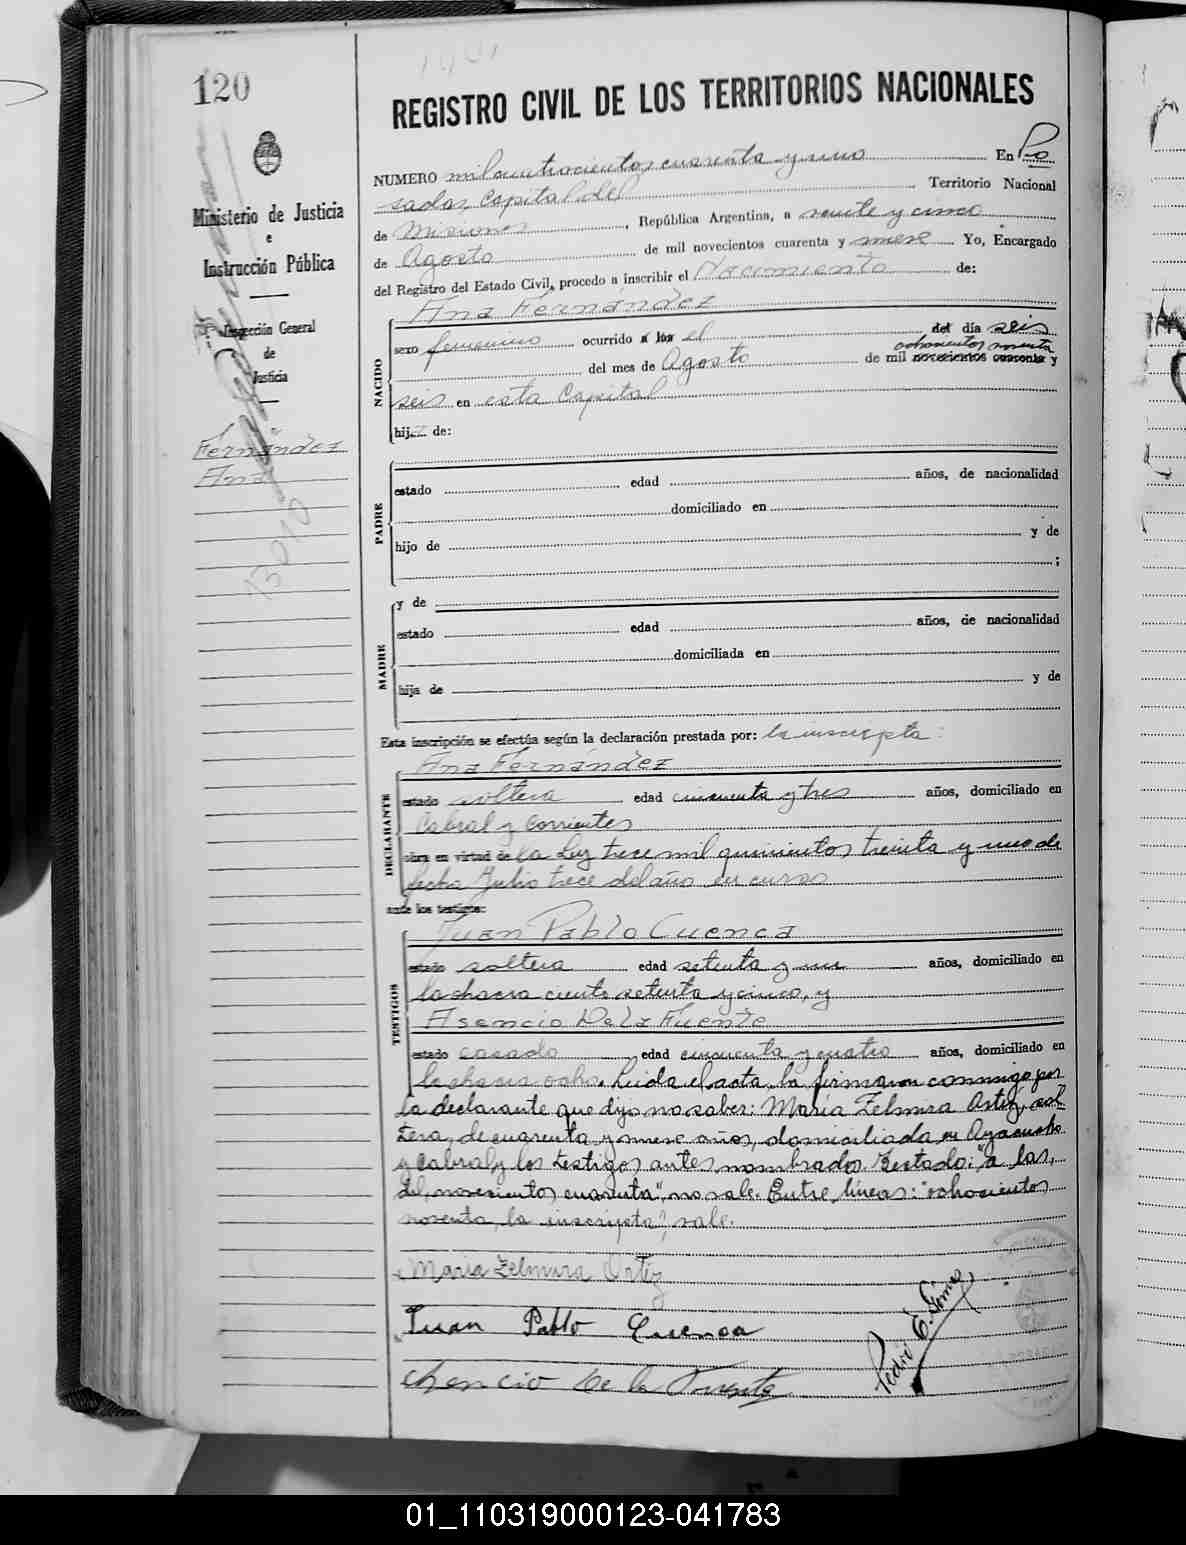 120
REGISTRO CIVIL DE LOS TERRITORIOS NACIONALES
Ministerio de Justicia
e
Instrucción Pública
Inspección General
de
Justicia
Fernández
Ana
13010
NUMERO mil cuatrocientos cuarenta y uno En Po
sadas, Capital del Territorio Nacional
de Misiones, República Argentina, a veinte y cinco
de Agosto de mil novecientos cuarenta y nueve Yo, Encargado
del Registro del Estado Civil, procedo a inscribir el Nacimiento de:
NACIDO
Ana Fernández
sexo femenino ocurrido a las el del día seis
ochocientos noventa
del mes de Agosto de mil novecientos cuarenta y
seis en esta Capital
hija de:
PADRE
estado edad años, de nacionalidad
domiciliado en
hijo de y de
;
MADRE
y de
estado edad años, de nacionalidad
domiciliada en
hija de y de
Esta inscripción se efectúa según la declaración prestada por: la inscripta:
DECLARANTE
Ana Fernández
estado soltera edad cincuenta y tres años, domiciliado en
Cabral y Corrientes
obra en virtud de la Ley trece mil quinientos treinta y uno de
fecha Julio trece del año en curso
ante los testigos:
TESTIGOS
Juan Pablo Cuenca
estado soltero edad setenta y un años, domiciliado en
la chacra ciento setenta y cinco, y
Asencio De la Fuente
estado casado edad cincuenta y cuatro años, domiciliado en
la chacra ocho. Leida el acta, la firmaron conmigo por
la declarante que dijo no saber: María Zelmira Ortiz, sol-
tera, de cuarenta y nueve años, domiciliada en Ayacucho
y Cabral y los testigos antes nombrados. Testado: "a las,
del, novecientos cuarenta", no vale. Entre líneas: "ochocientos
noventa, la inscripta", vale.
Maria Zelmira Ortiz
Juan Pablo Cuenca
Asencio De la Fuente
Pedro E. Gómez
01_110319000123-041783